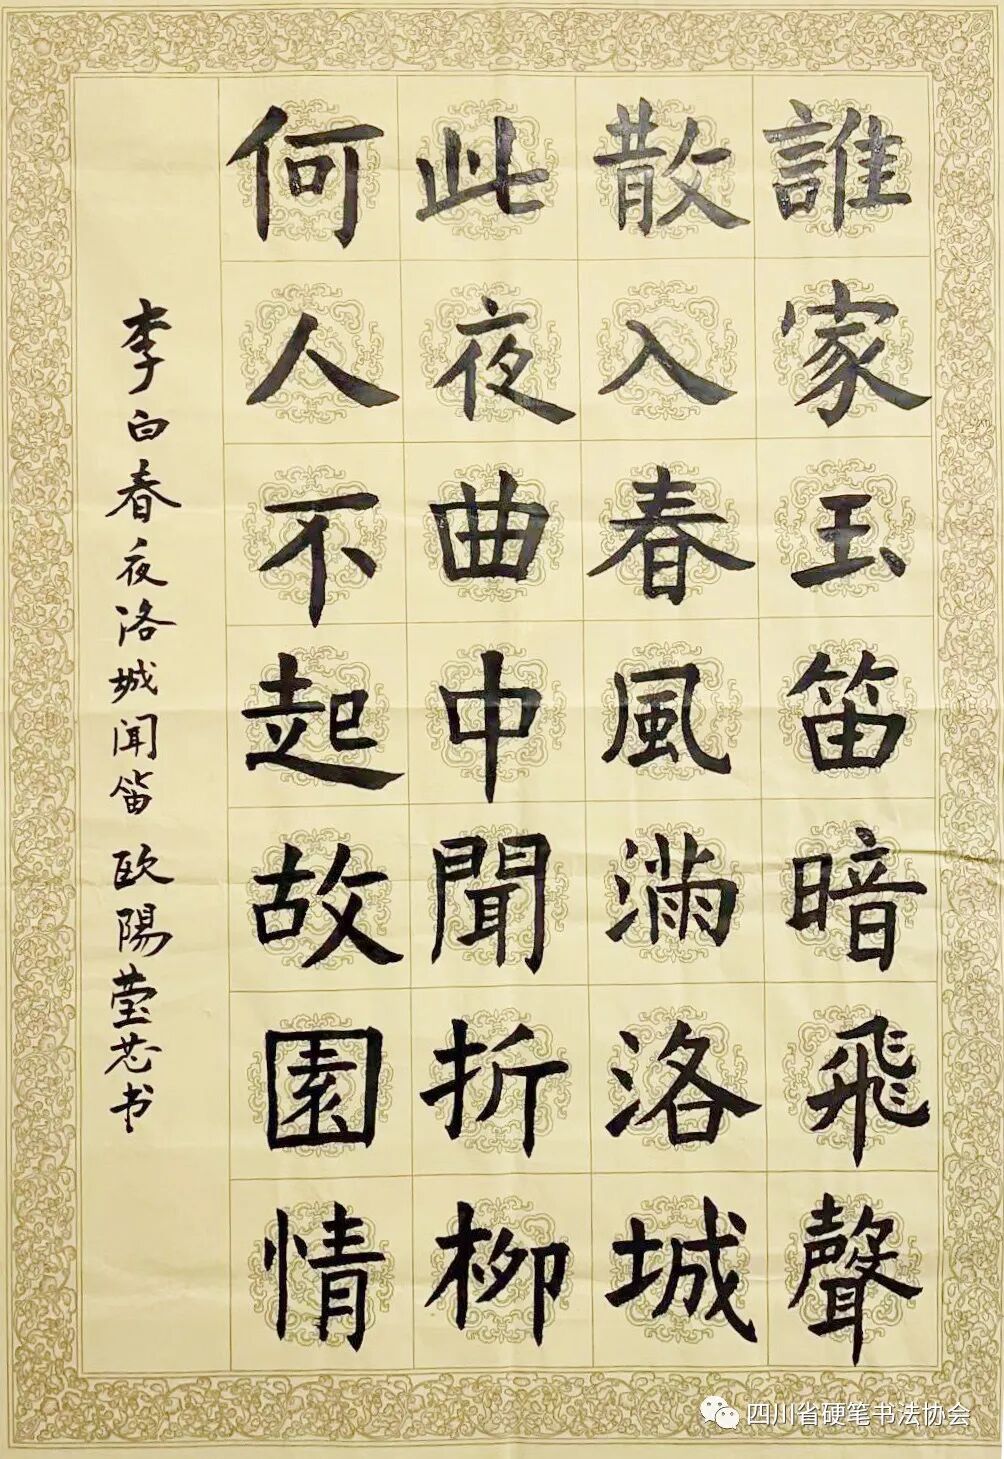 誰家玉笛暗飛聲
散入春風滿洛城
此夜曲中聞折柳
何人不起故園情
李白春夜洛城闻笛 欧陽莹芯书
四川省硬笔书法协会